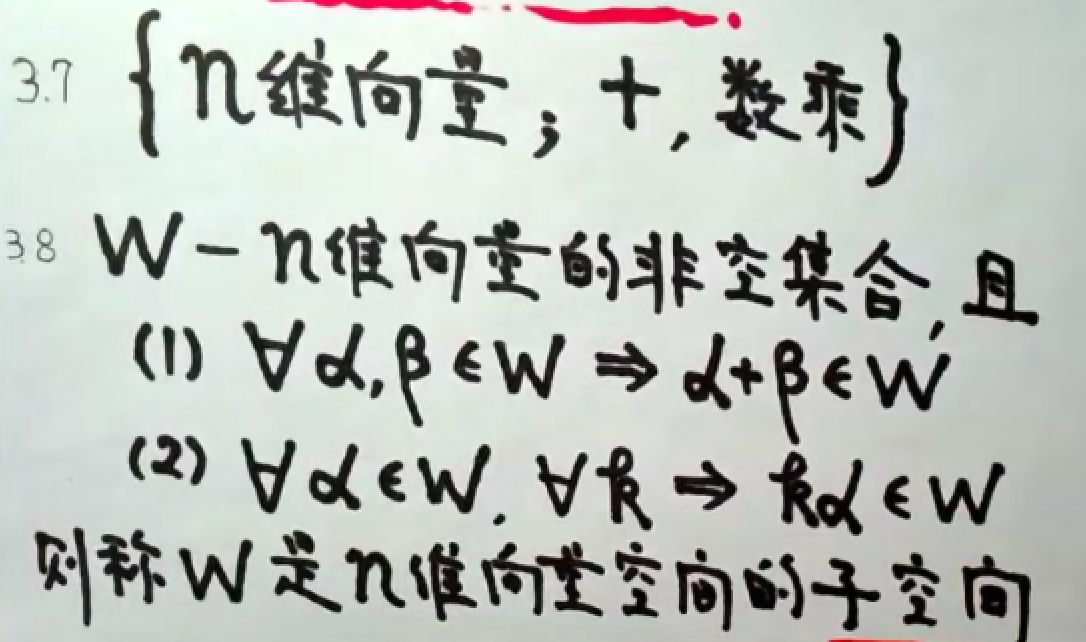 3.7 {n维向量; +, 数乘}
3.8 W - n维向量的非空集合, 且
(1) ∀α, β ∈ W ⇒ α+β ∈ W
(2) ∀α ∈ W, ∀k ⇒ kα ∈ W
则称W是n维向量空间的子空间